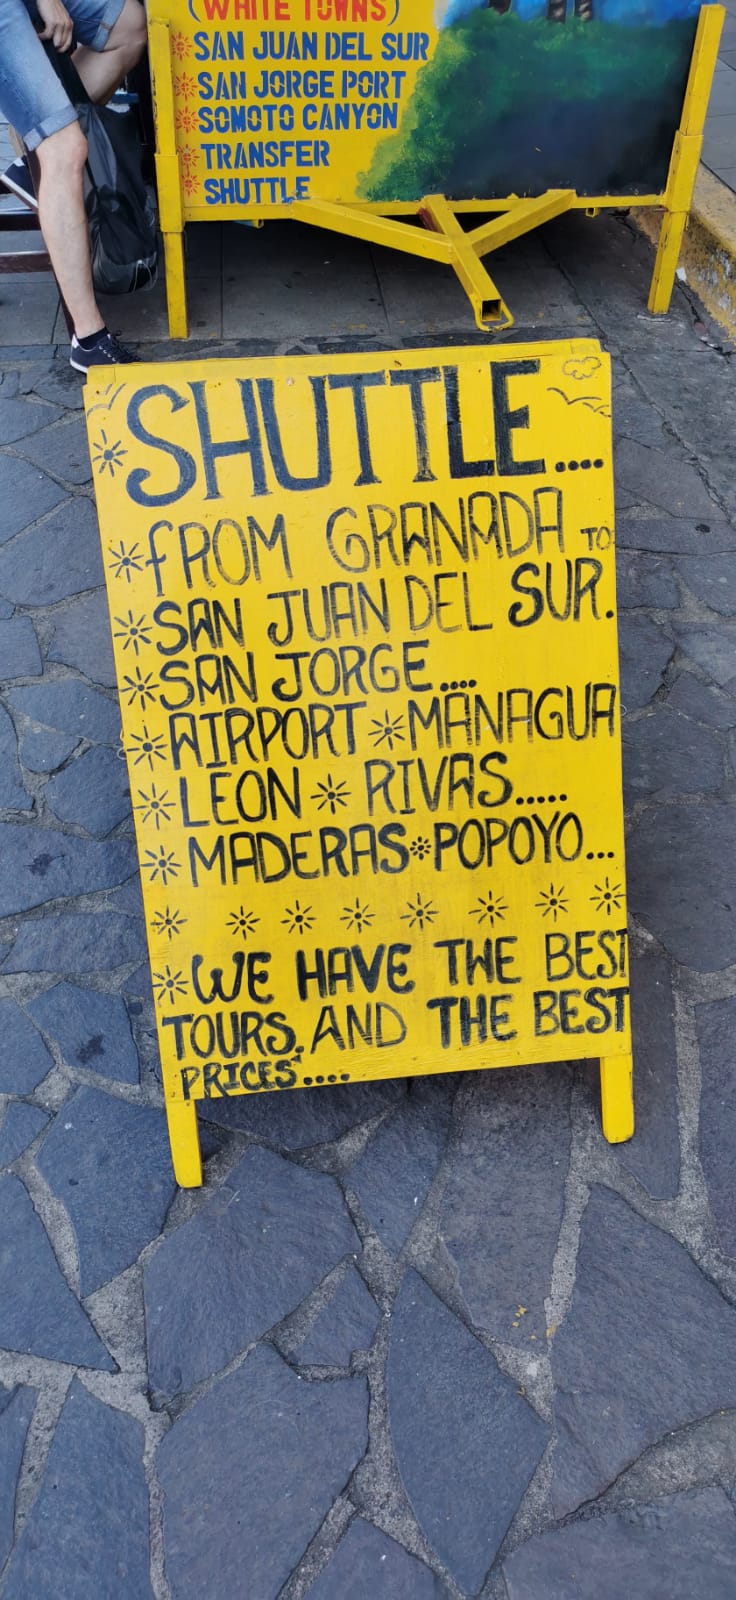 (WHITE TOWNS)
SAN JUAN DEL SUR
SAN JORGE PORT
SOMOTO CANYON
TRANSFER
SHUTTLE
SHUTTLE....
fROM GRANADA TO
SAN JUAN DEL SUR.
SAN JORGE....
AIRPORT MANAGUA
LEON RIVAS.....
MADERAS POPOYO...
WE HAVE THE BEST
TOURS, AND THE BEST
PRICES....